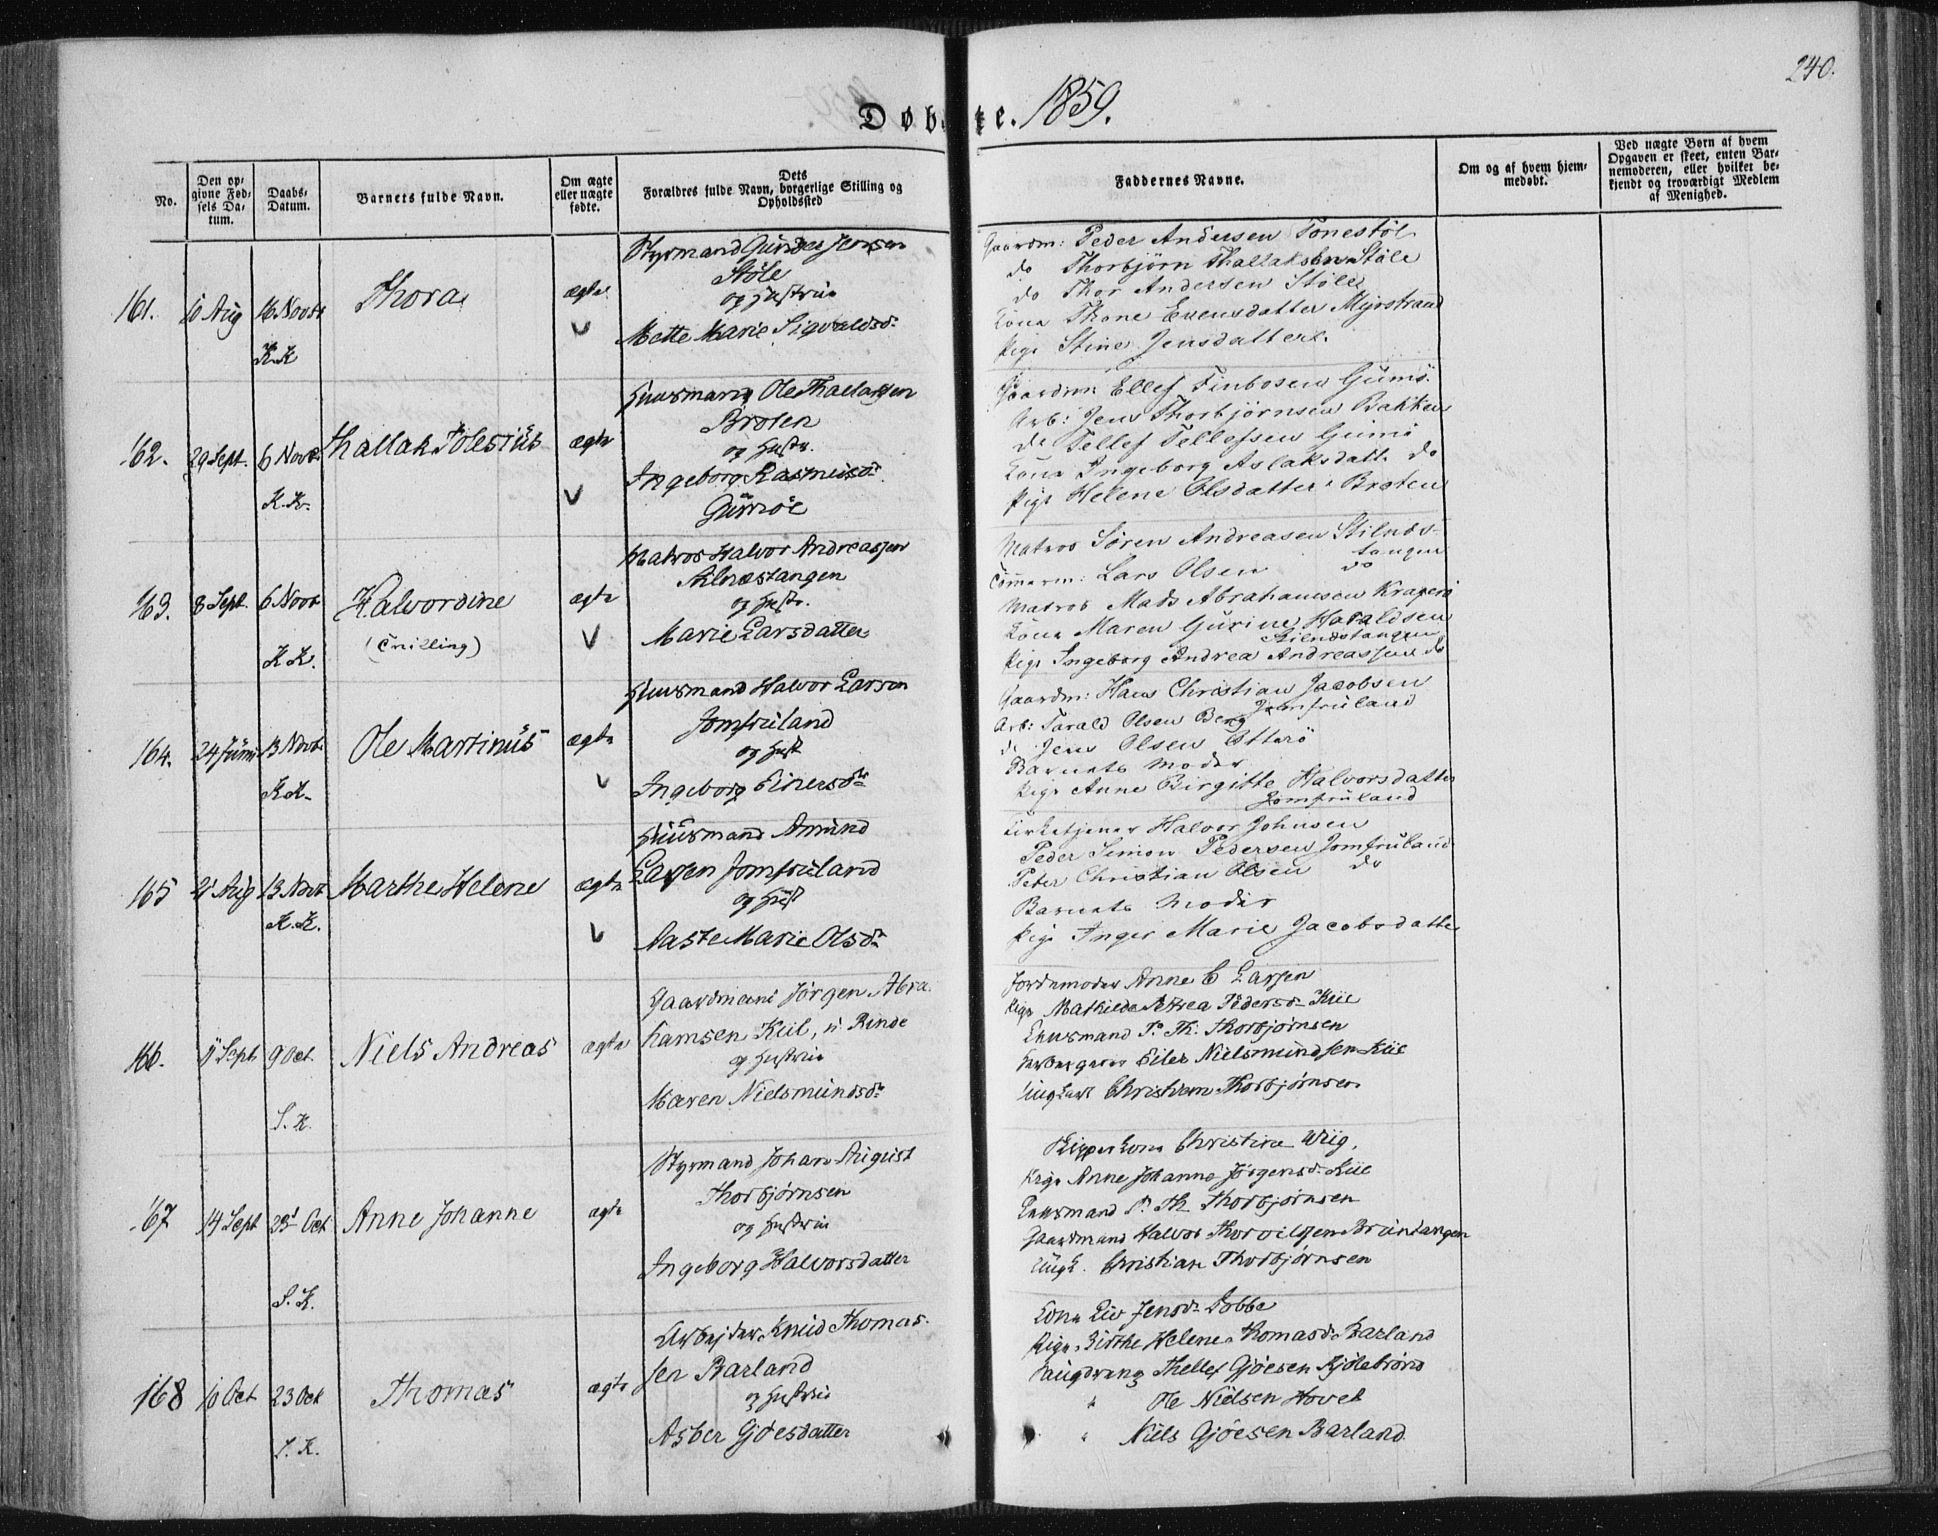 240.
Døbte. 1859.
No.
Den op-
givne Fød-
sels Da-
tum.
Daabs-
Datum.
Barnets fulde Navn.
Om ægte
eller uægte
fødte.
Dets
Forældres fulde Navn, borgerlige Stilling og
Opholdssted
Faddernes Navne.
Om og af hvem hjem-
medøbt.
Ved uægte Børn af hvem
Opgaven er skeet, enten Bar-
nemoderen, eller hvilket be-
kjendt og troværdigt Medlem
af Menighed.
161.
10 Aug
16 Novb
K.K
Thora
ægte
Styrmand Gunder Jensen
Støle
og Hustrue
Mette Marie Sigvaldsd.
Gaardm: Peder Andersen Tonestøl
do Thorbjørn Thallaksen Støle
do Thor Andersen Støle
Kona Thone Evensdatter Myrstrand
Pige Stine Jensdatter.
162.
29 Sept.
6 Novb.
K.K.
Thallak Tolesius
ægte
Huusmand Ole Thallaksen
Broten
og Hustr.
Ingeborg Rasmusd.
Gumøe
Gaardm: Ellef Finbosen Gumø.
Arb: Jens Thorbjørnsen Bakken
do Tellef Tellefsen Gumø
Kona Ingeborg Aslaksdatt. do
Pige Helene Olsdatter Broten
163.
8 Sept.
6 Novb
K.K.
Halvordine
(Tvilling)
ægte
Matros Halvor Andreassen
Stilnæstangen
og Hustr.
Marie Larsdatter
Matros Søren Andreasen Stilnæs-
tangen
Tømmerm: Lars Olsen do
Matros Mads Abrahamsen Kragerø
Kona Maren Gurine Haraldsen
Stilnæstangen
Pige Ingeborg Andrea Andreassen do
164.
24 Juni
13 Novb.
K.K.
Ole Martinus
ægte
Huusmand Halvor Larsen
Jomfruland
og Hust
Ingeborg Einersd.
Gaardm: Hans Christian Jacobsen
Jomfruland
Arb: Tarald Olsen Berg
do Jens Olsen Otterø
Barnets Moder
Pige Anne Birgitte Halvorsdatter
Jomfruland
165
21 Aug
13 Novb
K.K.
Marthe Helene
ægte
Huusmand Amund
Larsen Jomfruland
og Hust
Aaste Marie Olsd.
Kirketjener Halvor Johnsen
Peder Simon Pedersen Jomfruland
Peter Christian Olsen do
Barnets Moder
Pige Inger Marie Jacobsdatter
166.
11 Sept
9 Oct.
S.K.
Niels Andreas
ægte
Gaardmand Jørgen Abra-
hamsen Kiil, u. Rinde
og Hustrue
Maren Nielsmundsd.
Jordemoder Anne C Larsen
Pige Mathilde Petrea Pedersd. Kiil
Enkemand P. Th. Thorbjørnsen
Eilef Nielsmundsen Kiil
Ungkarl Christian Thorbjørnsen
167
14 Sept
23 Oct
S.K.
Anne Johanne
ægte
Styrmand Johan August
Thorbjørnsen
og Hustrue
Ingeborg Halvorsdatter
Skipperkone Christine Wiig.
Pige Anne Johanne Jørgensd. Kiil
Enkemand P. Th. Thorbjørnsen
Gaardmand Halvor Thorvildsen Bruntangen
Ungk. Christian Thorbjørnsen
168
10 Oct
23 Oct
S.K.
Thomas
ægte
Arbejder Knud Thomas-
sen Barland
og Hustrue
Asber Gjøesdatter
Kone Liv Jensd. Dobbe
Pige Birthe Helene Thomasd. Barland
Thellef Gjøesen Kjølebrønd
" Ole Nielsen Hovet
" Niels Gjøesen Barland